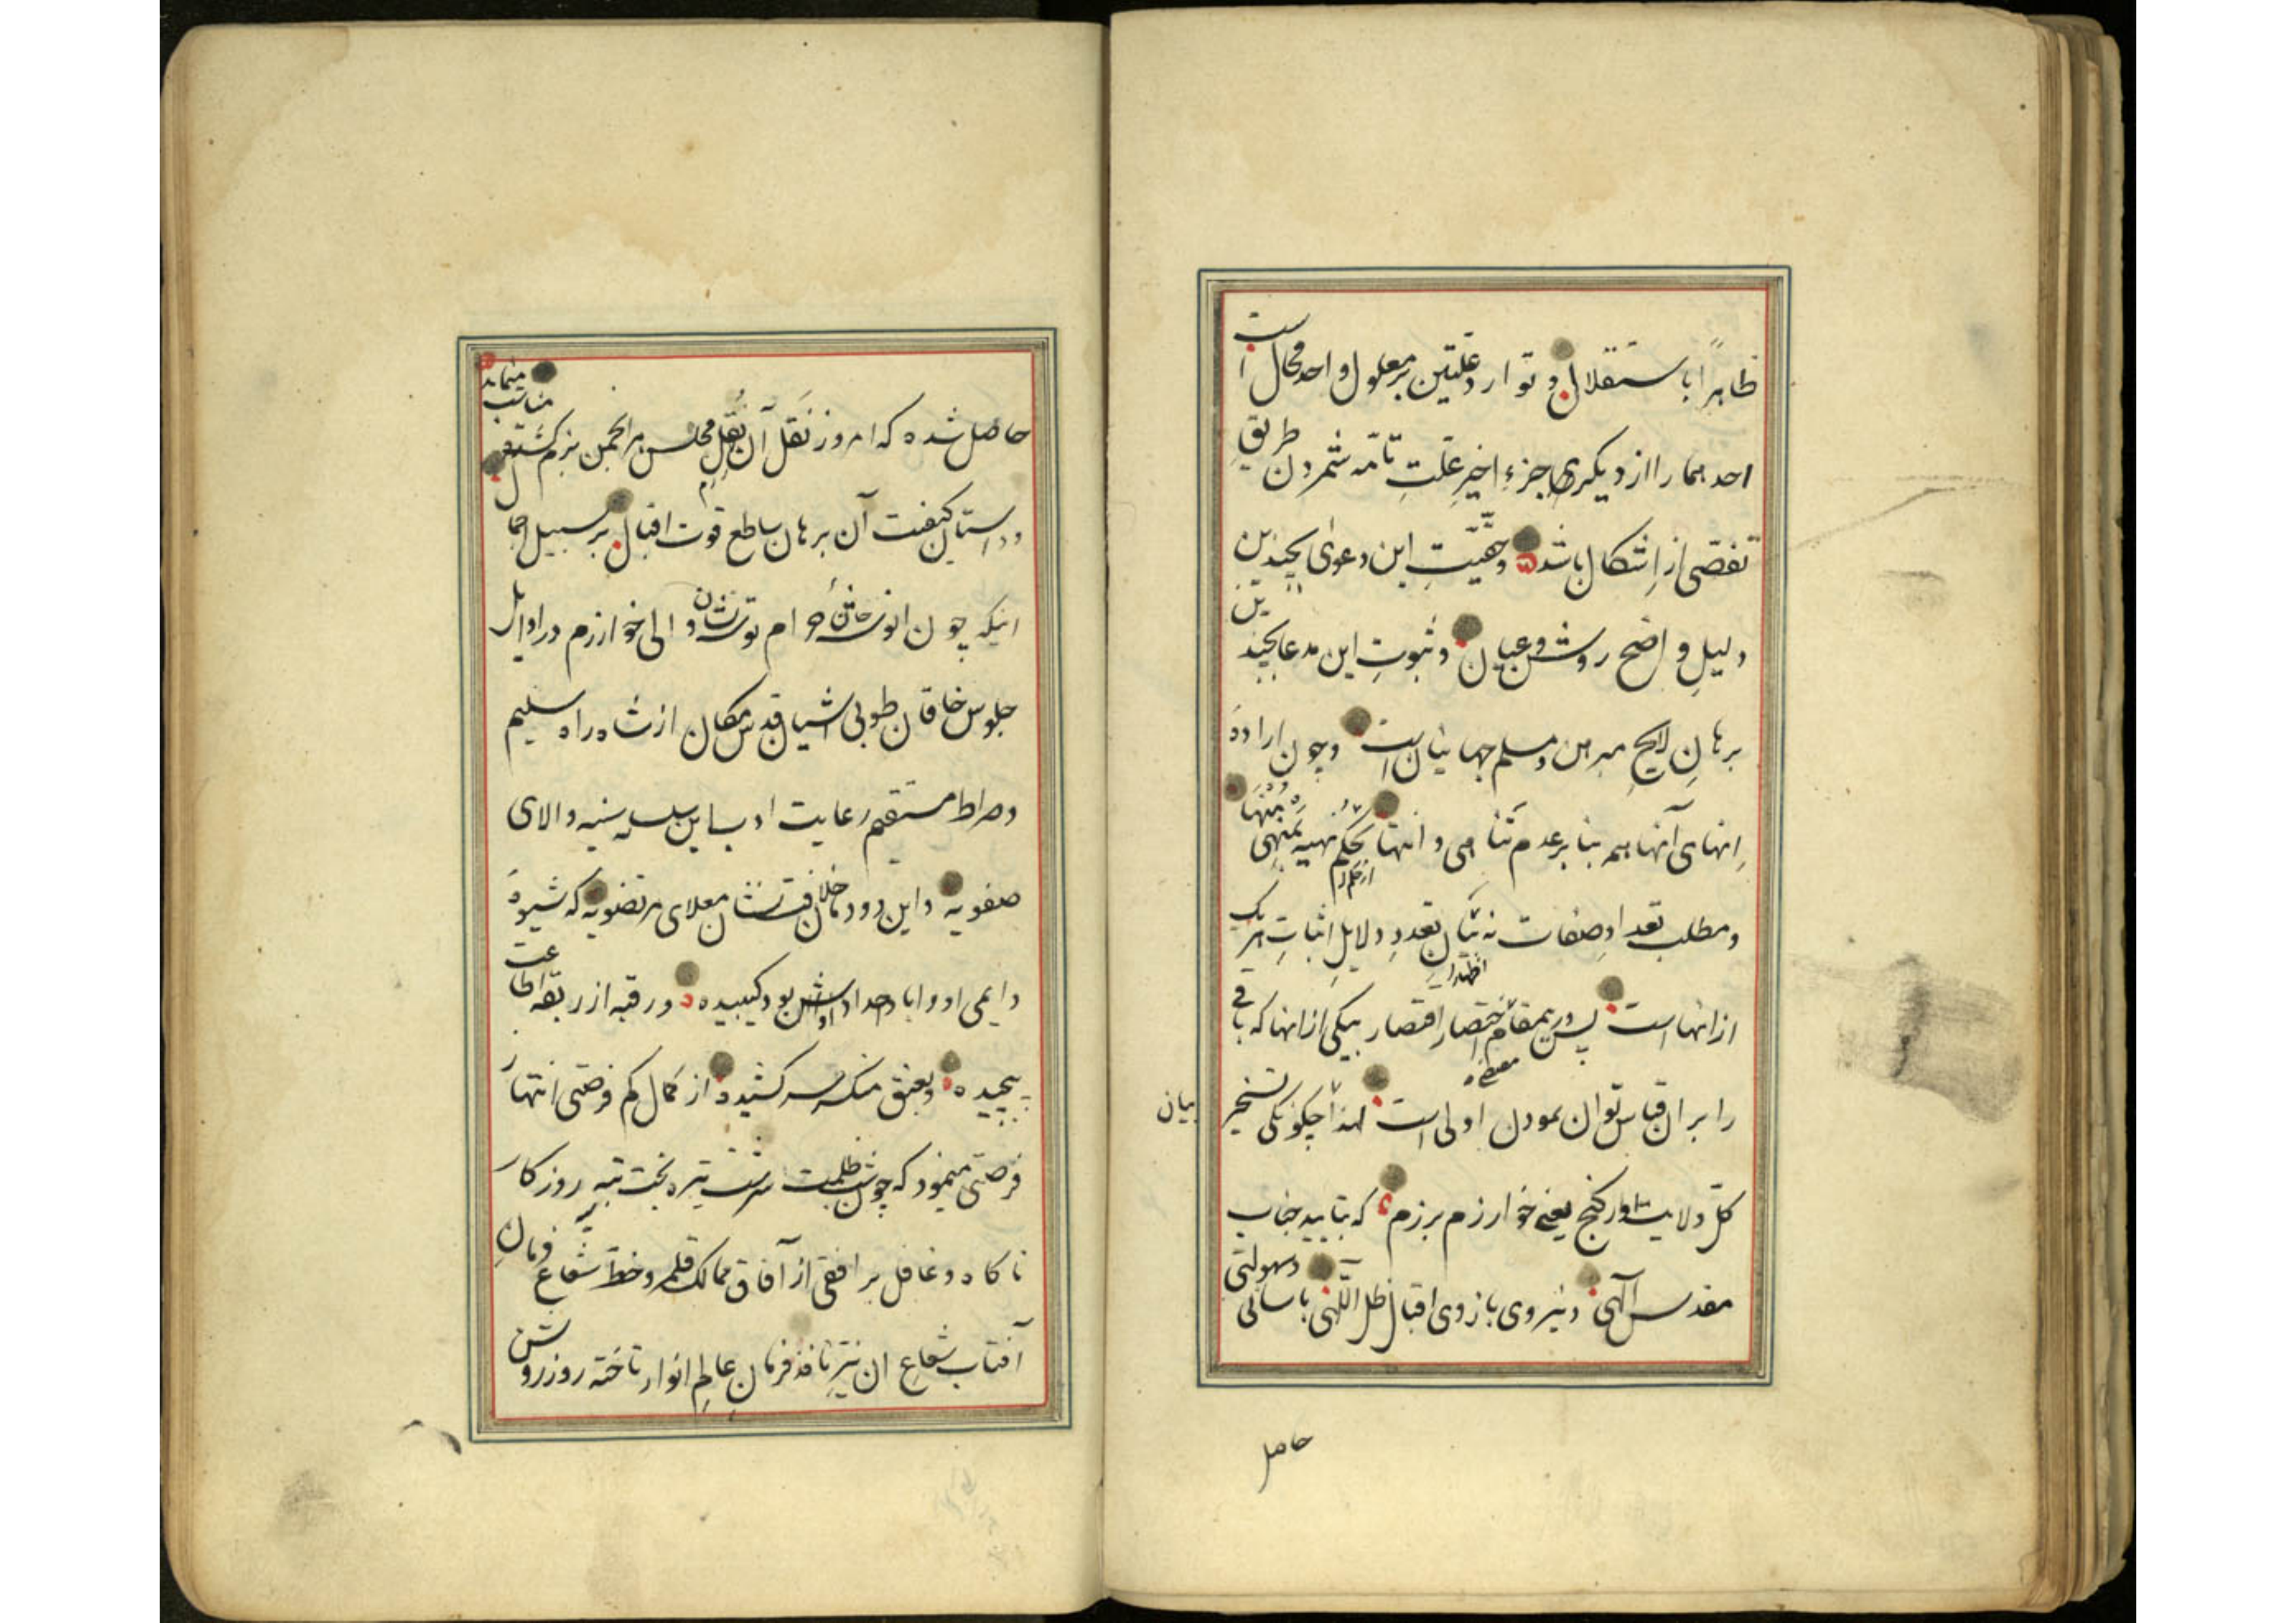 ظاهراً با استقلال و توارد علتین بر معلول واحد محال است
احدهما را از دیگری جزءِ اخیرِ علتِ تامّه شمردن طریقِ
تفصّی از اِشکال باشد و حقّیّتِ این دعوی بچندین
دلیلِ واضح روشن و عیان و ثبوتِ این مدعا بچندین
برهانِ لایحِ مبرهن و مسلم جهانیان است و چون ارادهٔ
اِنهای آنها هم بنا بر عدم تناهی و انتها بحکم نهیه
و مطلب تعداد صفات نه تبیان تعددِ دلایلِ اثباتِ هر یک
از انها است پس درین مقام اختصار اقتصار بیکی از انها که باقی
را بر ان قیاس توان نمودن اولی است لهذا چگونگی تسخیر
بیان
کلّ ولایت اورکنج یعنی خوارزم برزم که بتایید جناب
مقدس آلهی و نیروی بازوی اقبال ظل اللّهی باسانی و سهولتی
حاصل
حاصل شده که امروز نَقل آن نُقلِ مجلس هر انجمن بزم کشته مناسب مینماید
و داستان کیفیت آن برهان ساطع قوت اقبال بر سبیل اجمال
اینکه چون انوشه خان والی خوارزم در اوایل
جلوس خاقان طوبی آشیان قدس مکان از شاه راه سلیم
و صراط مستقیم رعایت ادب باین سلسله سنیه والای
صفویه و این دودمان خلافت نشان معلای مرتضویه که شیوهٔ
دایمی او و ابا و اجداد اوباش بود کیبیده و رقبه از ربقه اطاعت
پیچیده و بعنق منکسره سر کشیده از کمال کم فرصتی انتهاز
فرصتی مینمود که چون شب ظلمت سرشت تیره بخت تیره روزکار
ناکاه و غافل بر افقی از آفاق ممالک قلمرو خط شعاع فرمانِ
آفتاب شعاعِ ان نیّرِ نافذ فرمانِ عالمِ انوار تاخته روز روشن